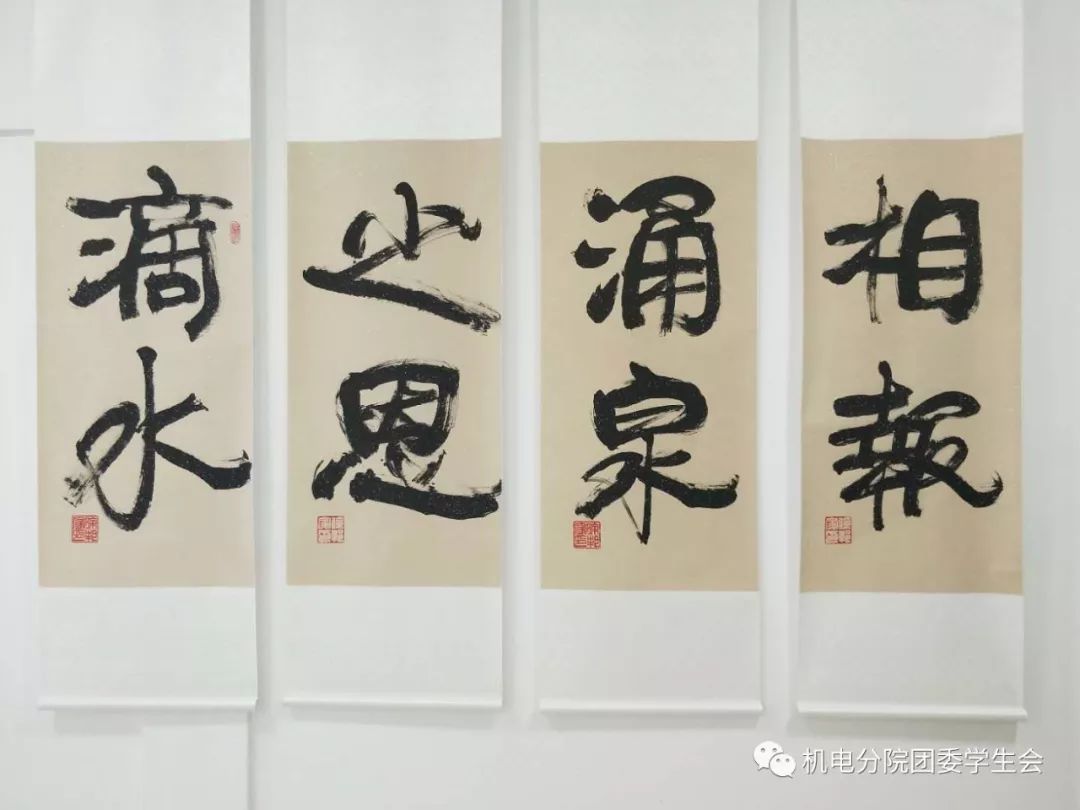 滴水
之恩
涌泉
相報
机电分院团委学生会